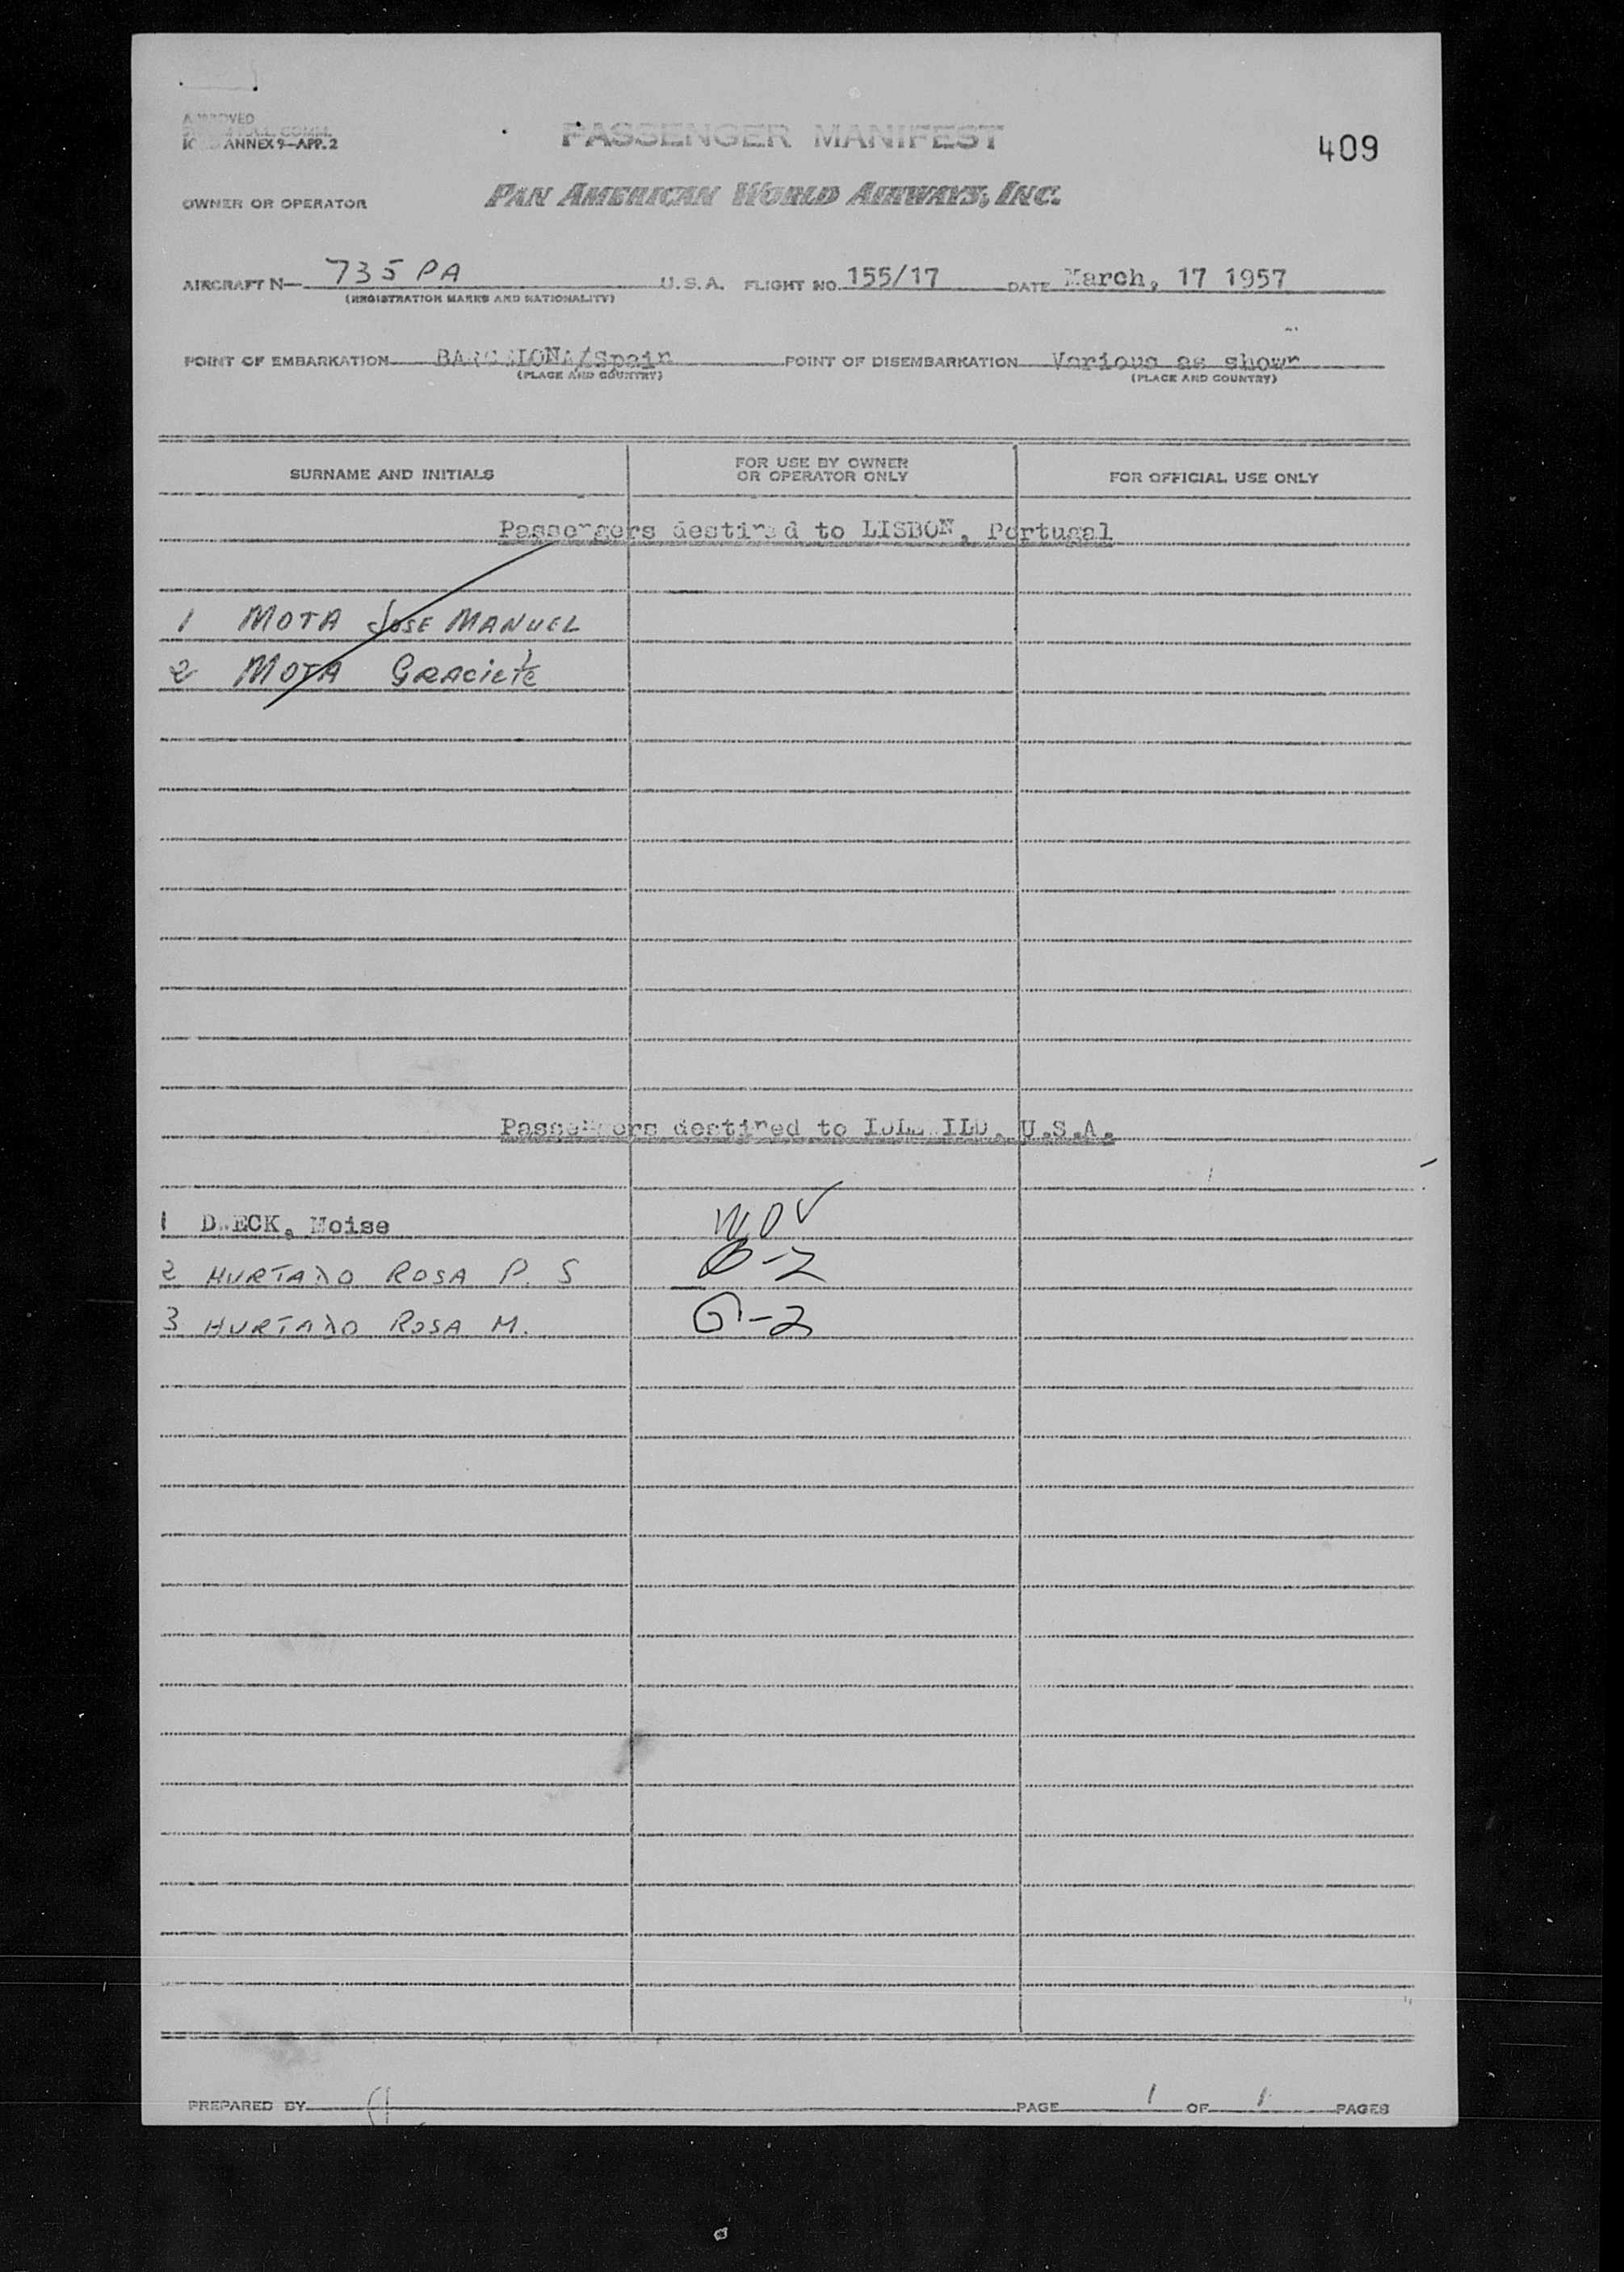 APPROVED
ANNEX 9—APP. 2
PASSENGER MANIFEST
409
OWNER OR OPERATOR
PAN AMERICAN WORLD AIRWAYS, INC.
AIRCRAFT N— 735 PA U.S.A. FLIGHT NO. 155/17 DATE March, 17 1957
(REGISTRATION MARKS AND NATIONALITY)
POINT OF EMBARKATION BARCELONA/Spain POINT OF DISEMBARKATION Various as shown
(PLACE AND COUNTRY) (PLACE AND COUNTRY)
SURNAME AND INITIALS
FOR USE BY OWNER
OR OPERATOR ONLY
FOR OFFICIAL USE ONLY
Passengers destined to LISBON, Portugal
1 MOTA JOSE MANUEL
2 MOTA GRACIETE
Passengers destined to IDLEWILD, U.S.A.
1 DWECK, Moise
2 HURTADO ROSA P. S B-2
3 HURTADO ROSA M. G-2
PREPARED BY PAGE 1 OF 1 PAGES